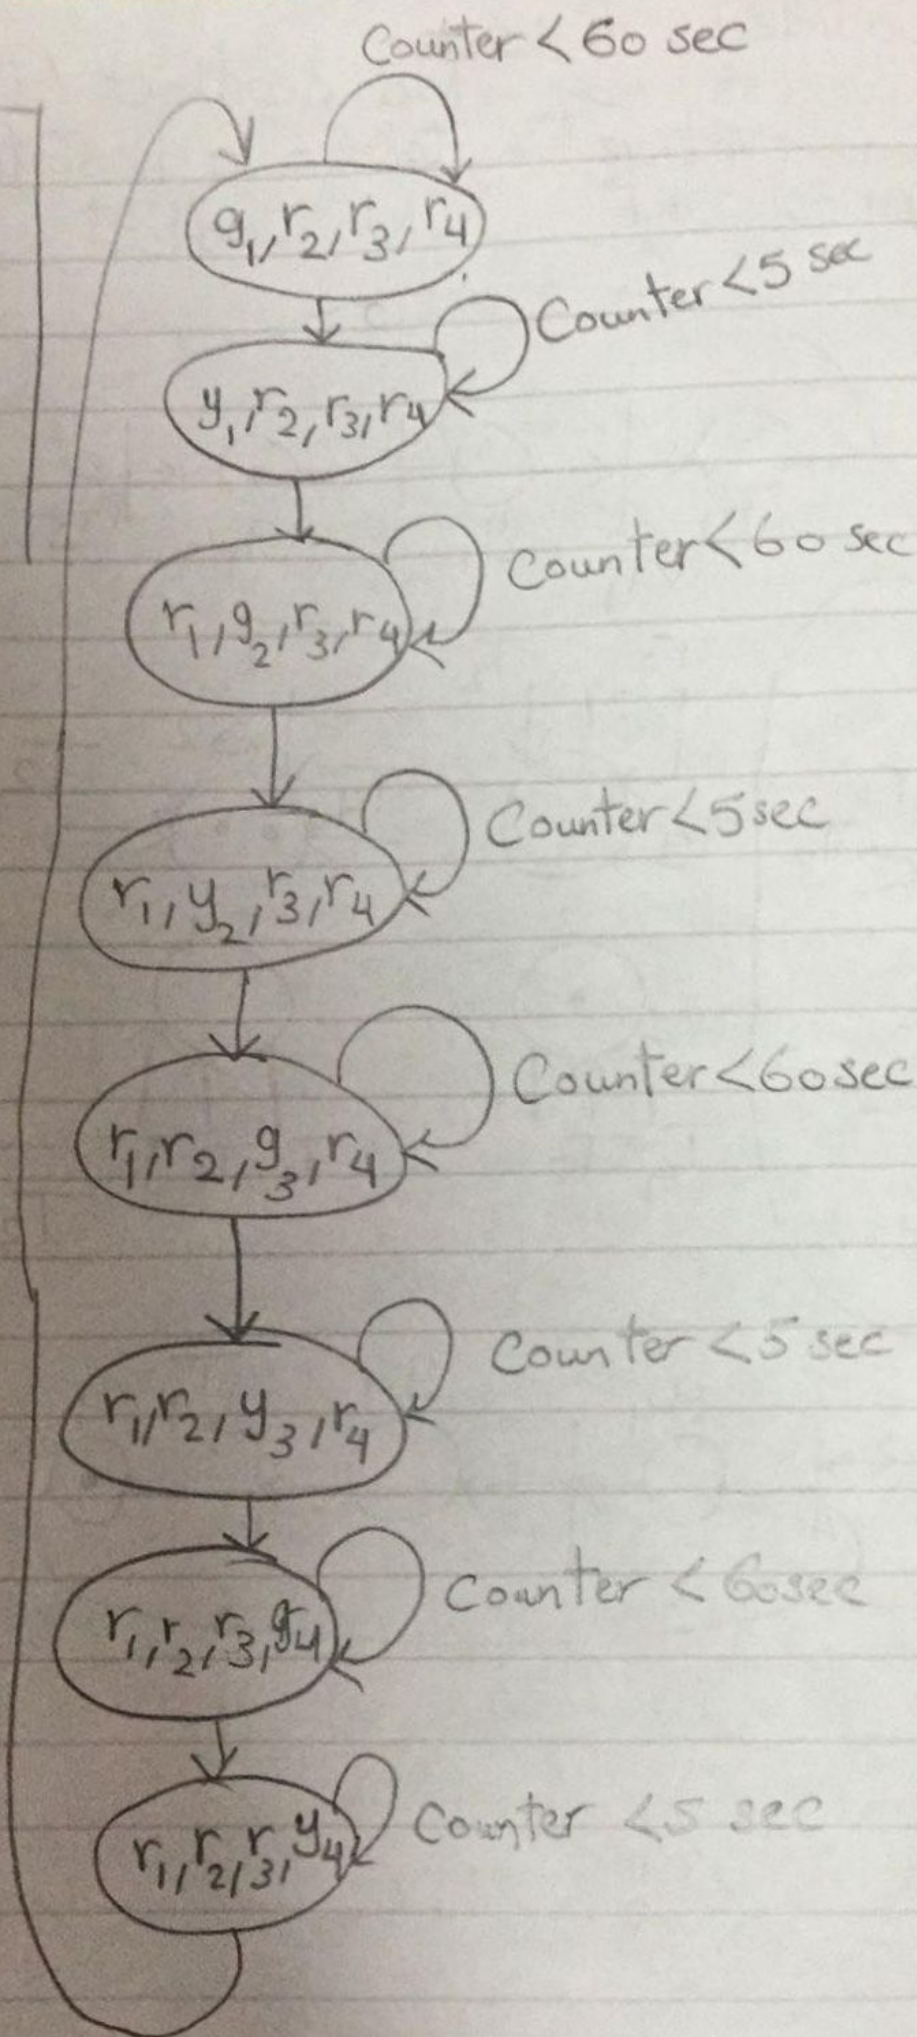 Counter < 60 sec
g1, r2, r3, r4
Counter < 5 sec
y1, r2, r3, r4
Counter < 60 sec
r1, g2, r3, r4
Counter < 5 sec
r1, y2, r3, r4
Counter < 60 sec
r1, r2, g3, r4
Counter < 5 sec
r1, r2, y3, r4
Counter < 60 sec
r1, r2, r3, g4
Counter < 5 sec
r1, r2, r3, y4